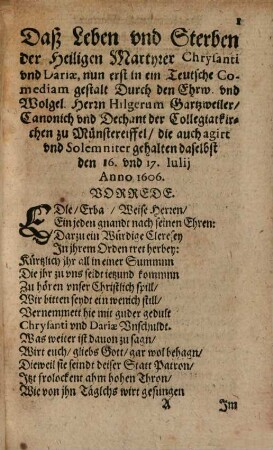 1
Daß Leben vnd Sterben
der Heiligen Martyrer Chrysanti
vnd Dariæ, nun erst in ein Teutsche Co-
mediam gestalt Durch den Ehrw. vnd
Wolgel. Herrn Hilgerum Gartzweiler/
Canonich vnd Dechant der Collegiatkir-
chen zu Münstereiffel/ die auch agirt
vnd Solemniter gehalten daselbst
den 16. vnd 17. Iulij
Anno 1606.
VORREDE.
EDle/ Erba/ Weise Herren/
Ein jeden gnandt nach seinen Ehren:
Darzu ein Würdige Cleresey
In jhrem Orden tret herbey:
Kürtzlich jhr all in einer Summun
Die jhr zu vns seidt ietzund kommun
Zu hören vnser Christlich spill/
Wir bitten seydt ein wenich still/
Vernemmett hie mit guder gedult
Chrysanti vnd Dariæ Vnschuldt.
Was weiter ist dauon zu sagn/
Wirt euch/ gliebs Gott/ gar wol behagn/
Dieweil sie seindt deiser Statt Patron/
Itzt frolockent ahm hohen Thron/
Wie von jhn Täglchs wirt gesungen
A Im